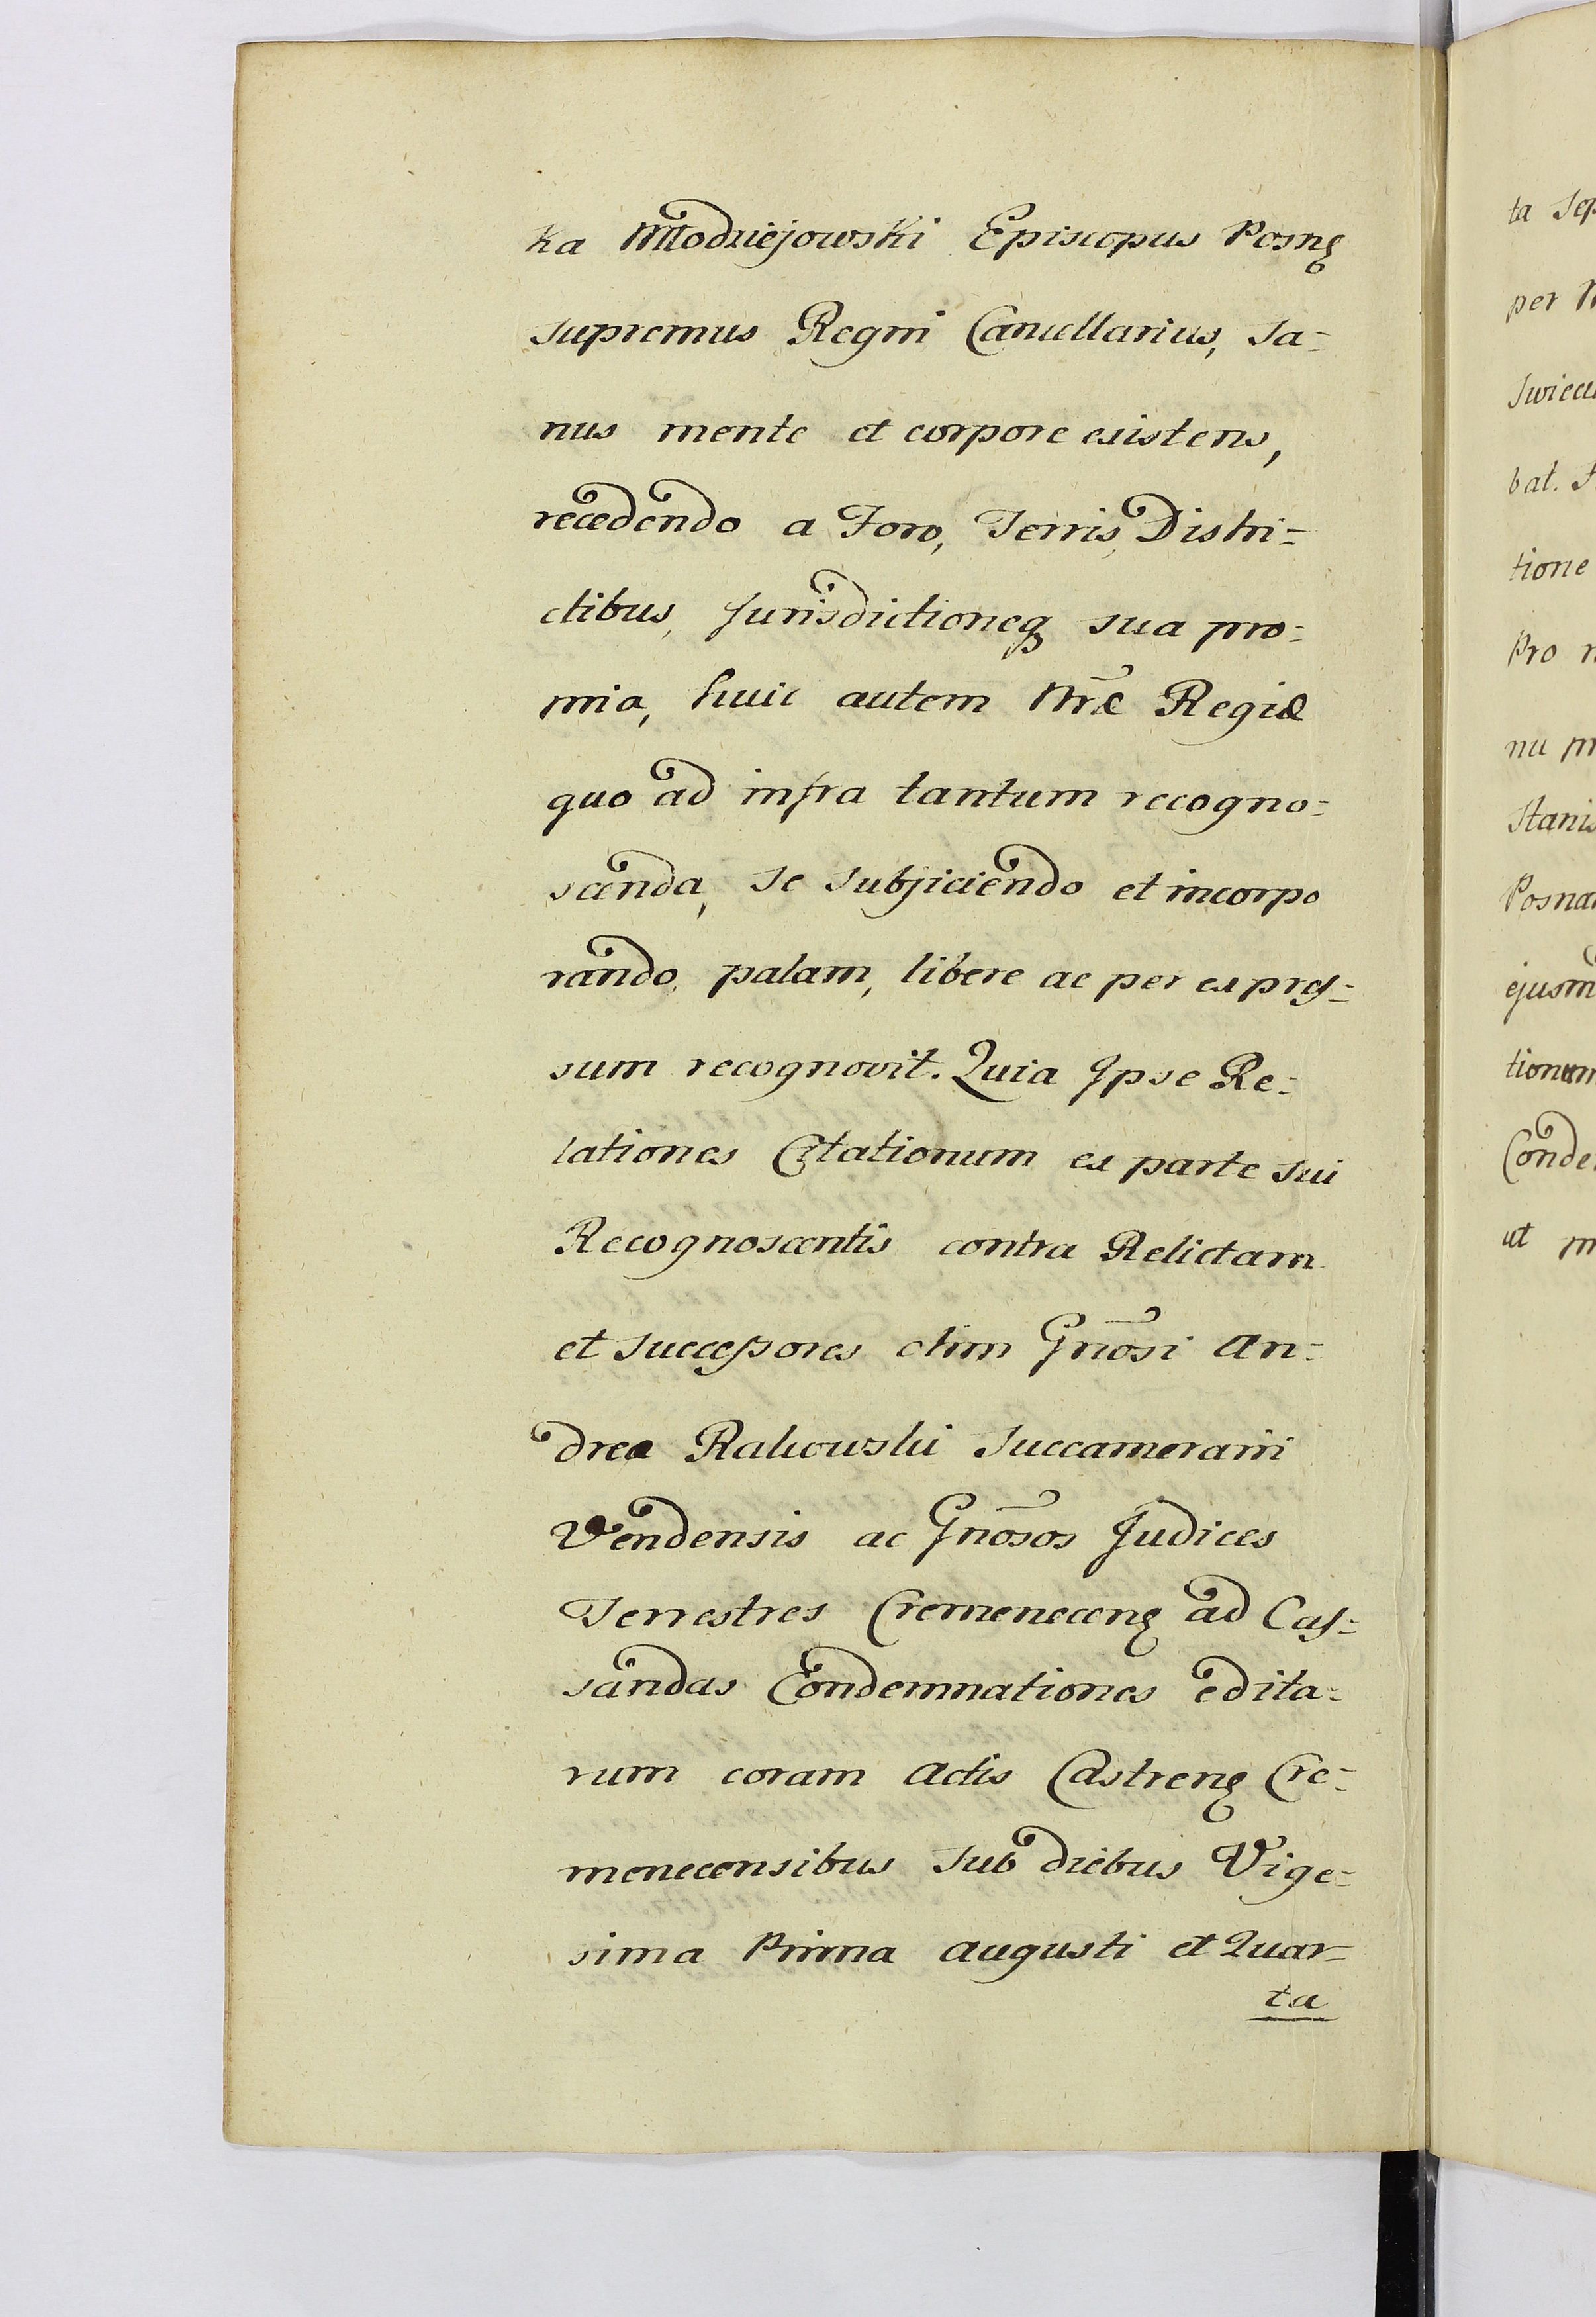 ka Młodziejowski Episcopus Posnę
supremus Regni Cancellarius, sa=
nus mente et corpore existens,
recedendo a Foro, Terris, Distri=
ctibus, Jurisdictioneqꝫ sua pro=
pria, huic autem Mttæ Regiæ
quo ad infra tantum recogno=
scenda, se subjiciendo et incorpo
rando, palam, libere ac per expres=
sum recognovit. Quia Ipse Re=
lationes Citationum ex parte sui
Recognoscentis contra Relictam
et successores olim Gnõsi An=
dreæ Rakowski Succamerarii
Vendensis ac Gnõsos Judices
Terrestres Cremenecenę ad Cas=
sandas Condemnationes edita=
rum coram Actis Castrenę Cre=
menecensibus sub diebus Vige=
sima Prima Augusti et Quar=
ta
ta Sep
per
bat.
tione
Pro
nu
Stanis
Posna
ejusm
tionum
Conde
ut